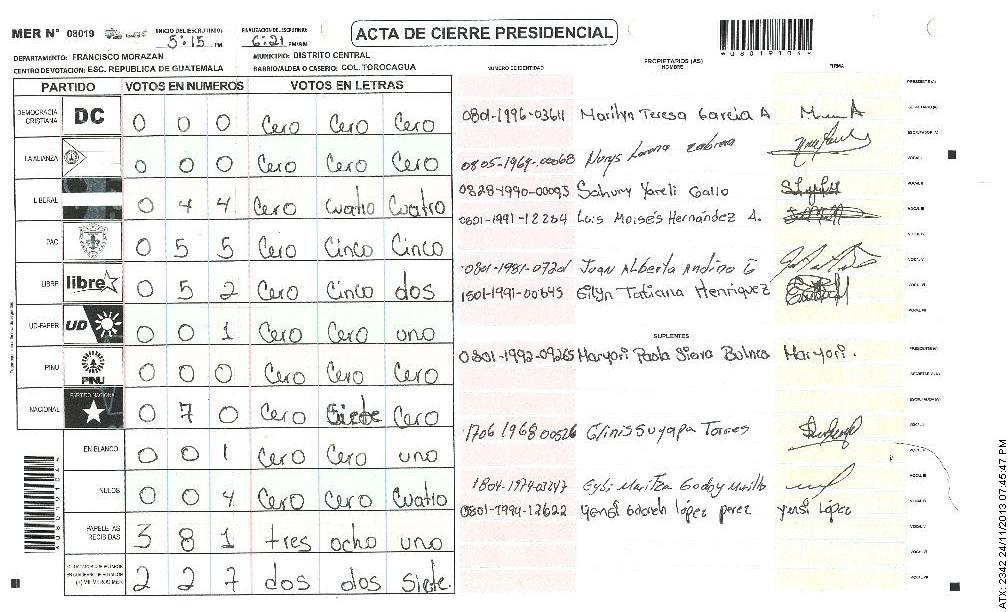 MER N° 08019 INICIO DEL ESCRUTINIO: 5:15 PM FINALIZACION DEL ESCRUTINIO: 6:21 PM/AM ACTA DE CIERRE PRESIDENCIAL
DEPARTAMENTO: FRANCISCO MORAZAN MUNICIPIO: DISTRITO CENTRAL
CENTRO DE VOTACION: ESC. REPUBLICA DE GUATEMALA BARRIO/ALDEA O CASERIO: COL. TOROCAGUA
PARTIDO VOTOS EN NUMEROS VOTOS EN LETRAS
DEMOCRACIA CRISTIANA DC 0 0 0 Cero Cero Cero
LA ALIANZA 0 0 0 Cero Cero Cero
LIBERAL 0 4 4 Cero Cuatro Cuatro
PAC 0 5 5 Cero Cinco Cinco
LIBRE libre 0 5 2 Cero Cinco dos
UD-FAPER UD 0 0 1 Cero Cero uno
PINU PINU 0 0 0 Cero Cero Cero
NACIONAL PARTIDO NACIONAL 0 7 0 Cero Siete Cero
EN BLANCO 0 0 1 Cero Cero uno
NULOS 0 0 4 Cero Cero Cuatro
PAPELETAS RECIBIDAS 3 8 1 tres ocho uno
2 2 7 dos dos Siete.
NUMERO DE IDENTIDAD PROPIETARIOS (AS) NOMBRE FIRMA
0801-1996-03611 Marilyn Teresa Garcia A
0805-1969-00068 Norys Lorena
0828-1990-00093 Sahury Yareli Gallo
0801-1991-12284 Luis Moisés Hernández A.
0801-1981-07201 Juan Alberto Andino G
1501-1991-00645 Eilyn Tatiana Henriquez
SUPLENTES
0801-1992-09265 Maryori Paola Sierra Maryori.
1706 1968 00526 Glinis Suyapa Torres
1804-1979-03247 Maritza Godoy Murillo
0801-1994-12622 Yensi lópez perez yensi lópez
ATX: 2342 24/11/2013 07:45:47 PM